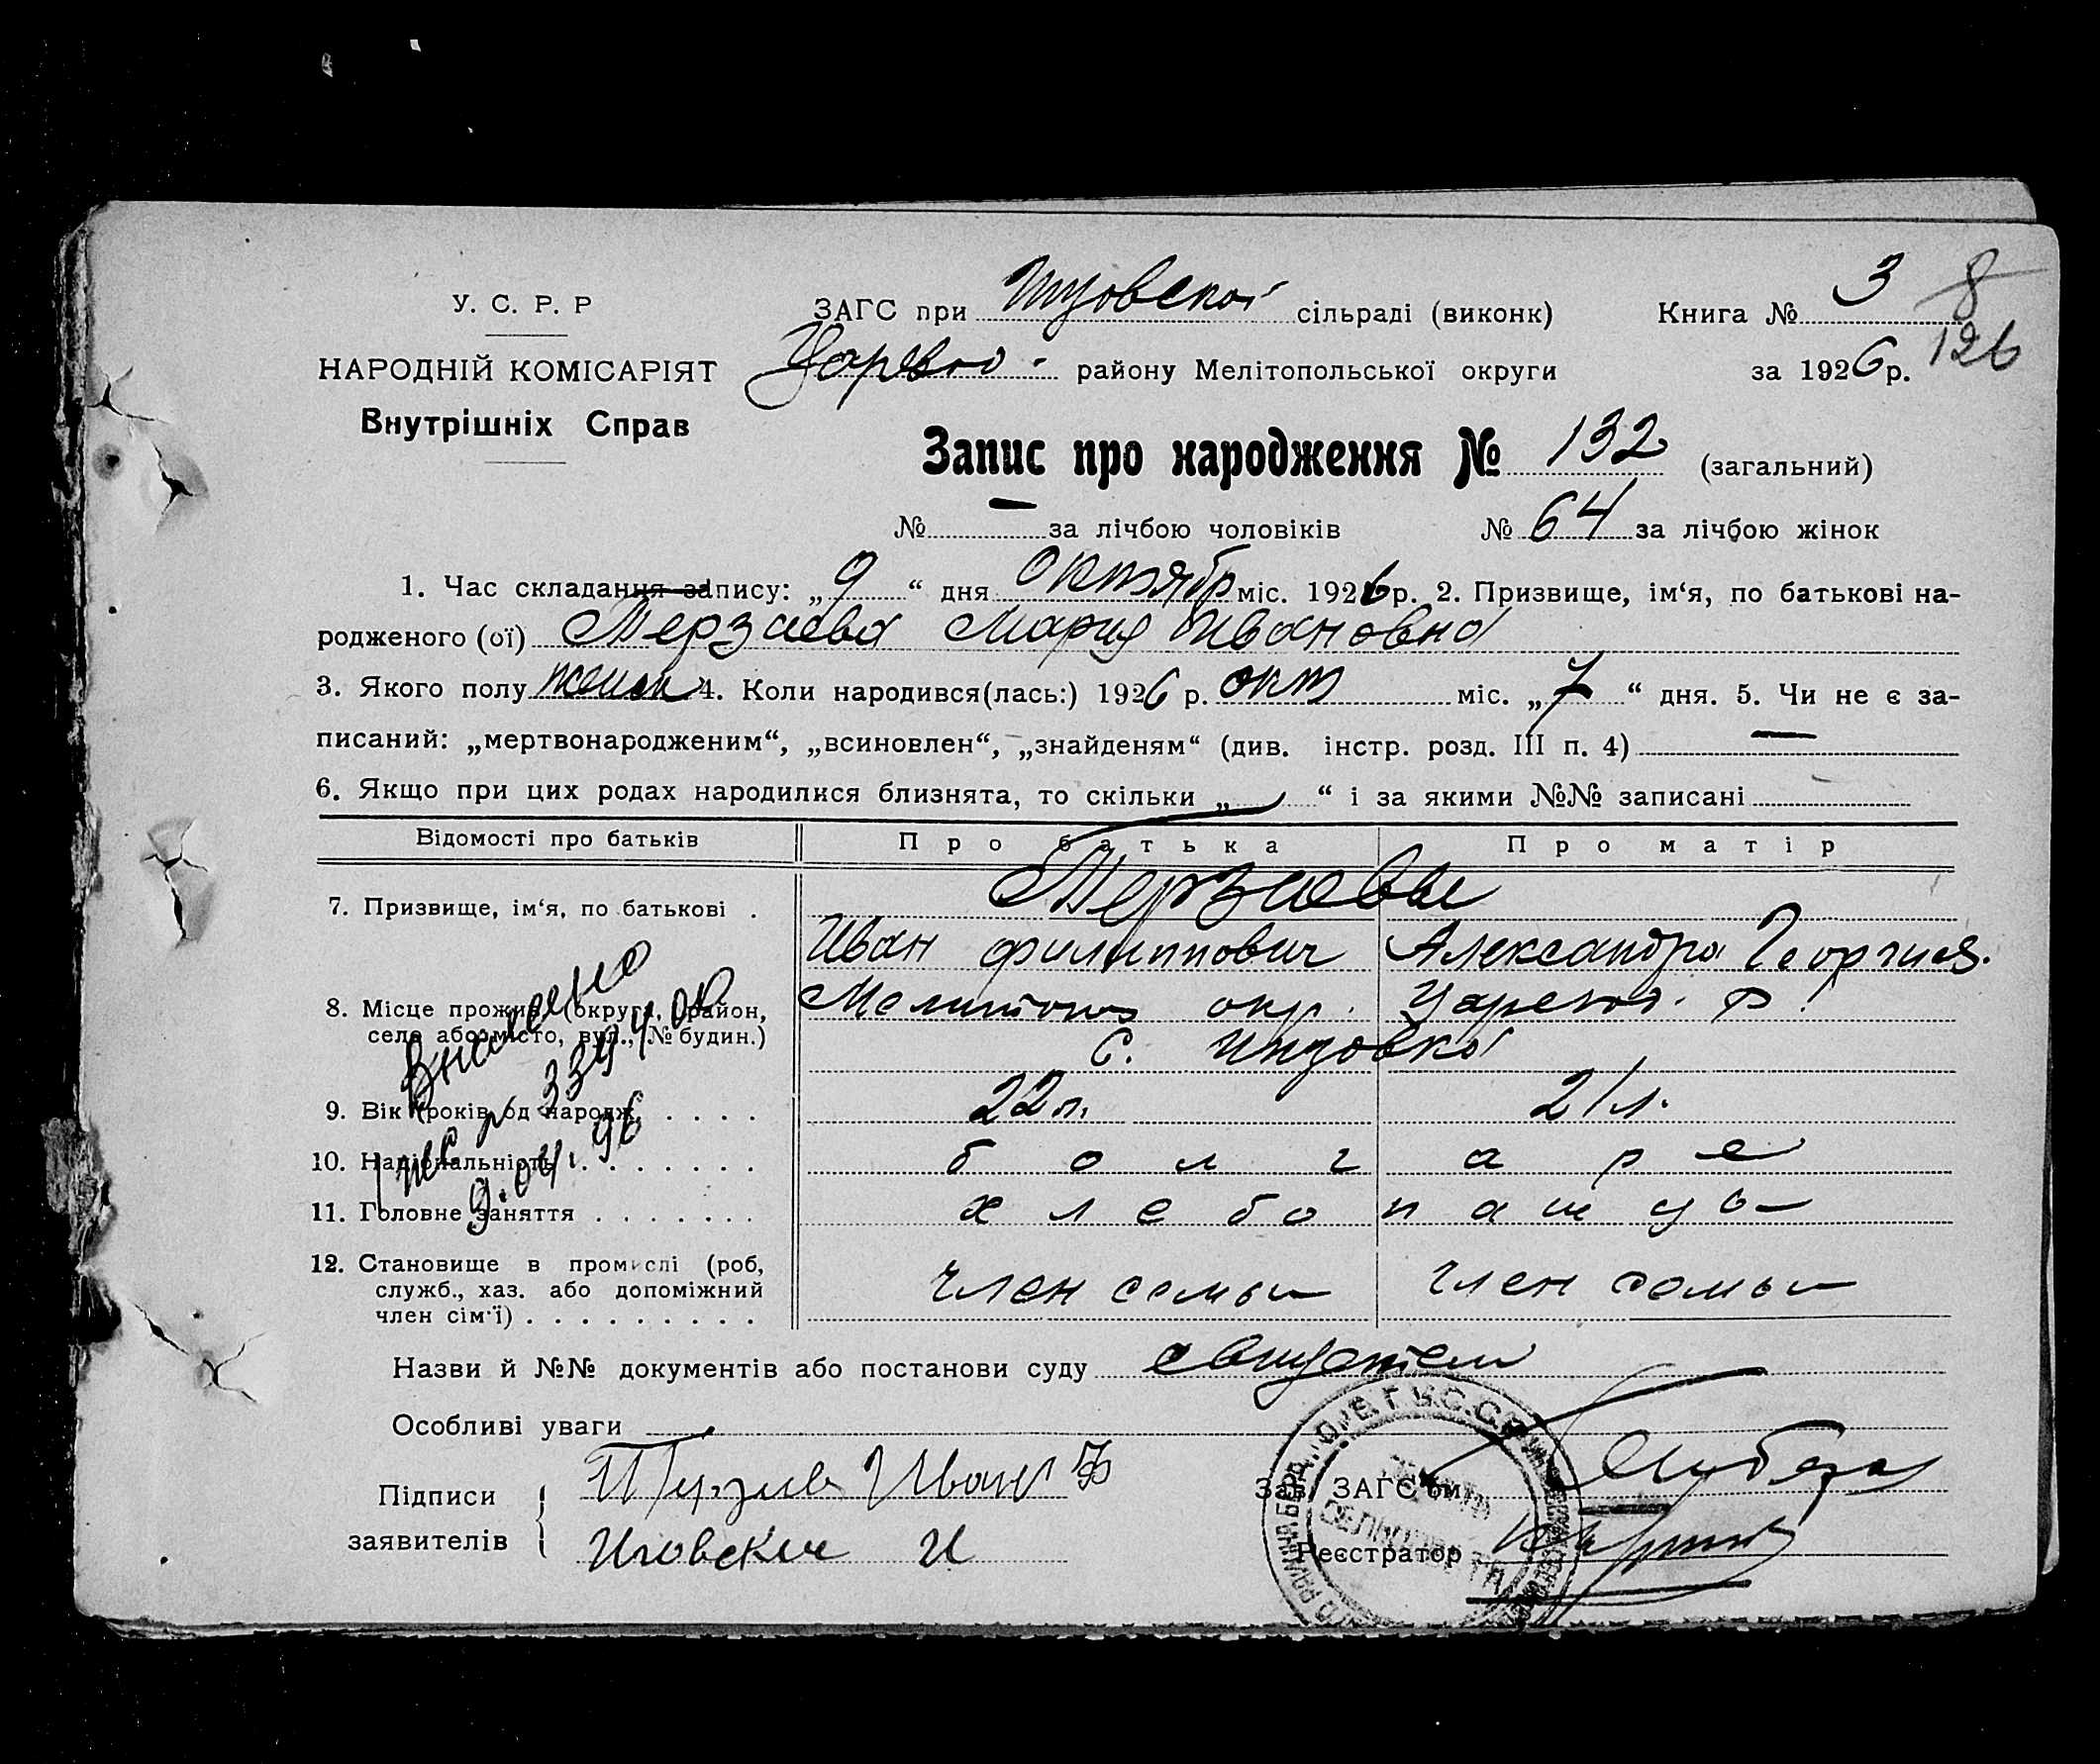 У. С. Р. Р
НАРОДНІЙ КОМІСАРІЯТ
Внутрішніх Справ
ЗАГС при Инзовской сільраді (виконк)
Царевод- району Мелітопольської округи
Книга № 3
8
за 1926 р.
126
Запис про народження № 132 (загальний)
№ — за лічбою чоловіків № 64 за лічбою жінок
1. Час складання запису: „9“ дня октябр міс. 1926 р. 2. Призвище, ім‘я, по батькові на-
родженого (ої) Терзиева Мария Ивановна
3. Якого полу женск 4. Коли народився(лась:) 1926 р. окт міс. „7“ дня. 5. Чи не є за-
писаний: „мертвонародженим“, „всиновлен“, „знайденям“ (див. інстр. розд. III п. 4) —
6. Якщо при цих родах народилися близнята, то скільки „—“ і за якими №№ записані
Відомості про батьків Про батька Про матір
7. Призвище, ім‘я, по батькові . Терзиевы
Иван Филиппович Александра Георгиев.
8. Місце прожив. (округа, район, Мелитопол окр. Царевод. р.
село або місто, вул., № будин.) с. Инзовка
9. Вік (років од народж. . . . . 22 л. 21 л.
10. Національність . . . . . . . болгаре
11. Головне заняття . . . . . . . хлебопашцы
12. Становище в промислі (роб, служб., хаз. або допоміжний член сім‘ї) . . . . . . . . . член семьи член семьи
9.04.96
Назви й №№ документів або постанови суду
Особливі уваги
Підписи заявителів
Терзиев Иван Ф
И
Зав. ЗАГС‘ом
Реєстратор